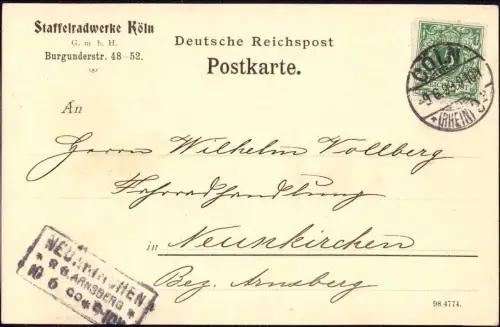 Staffelradwerke Köln
G. m. b. H.
Burgunderstr. 48-52.
Deutsche Reichspost
Postkarte.
CÖLN
9 6 99
*(RHEIN)
An
Herrn Wilhelm Vollberg
Fahrradhandlung
in Neunkirchen
Bez. Arnsberg
NEUNKIRCHEN
* R.B. ARNSBERG *
10 6
98.4774.